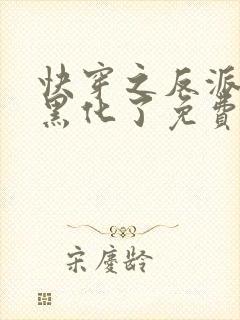 快穿之反派
黑化了免費
宋慶齡